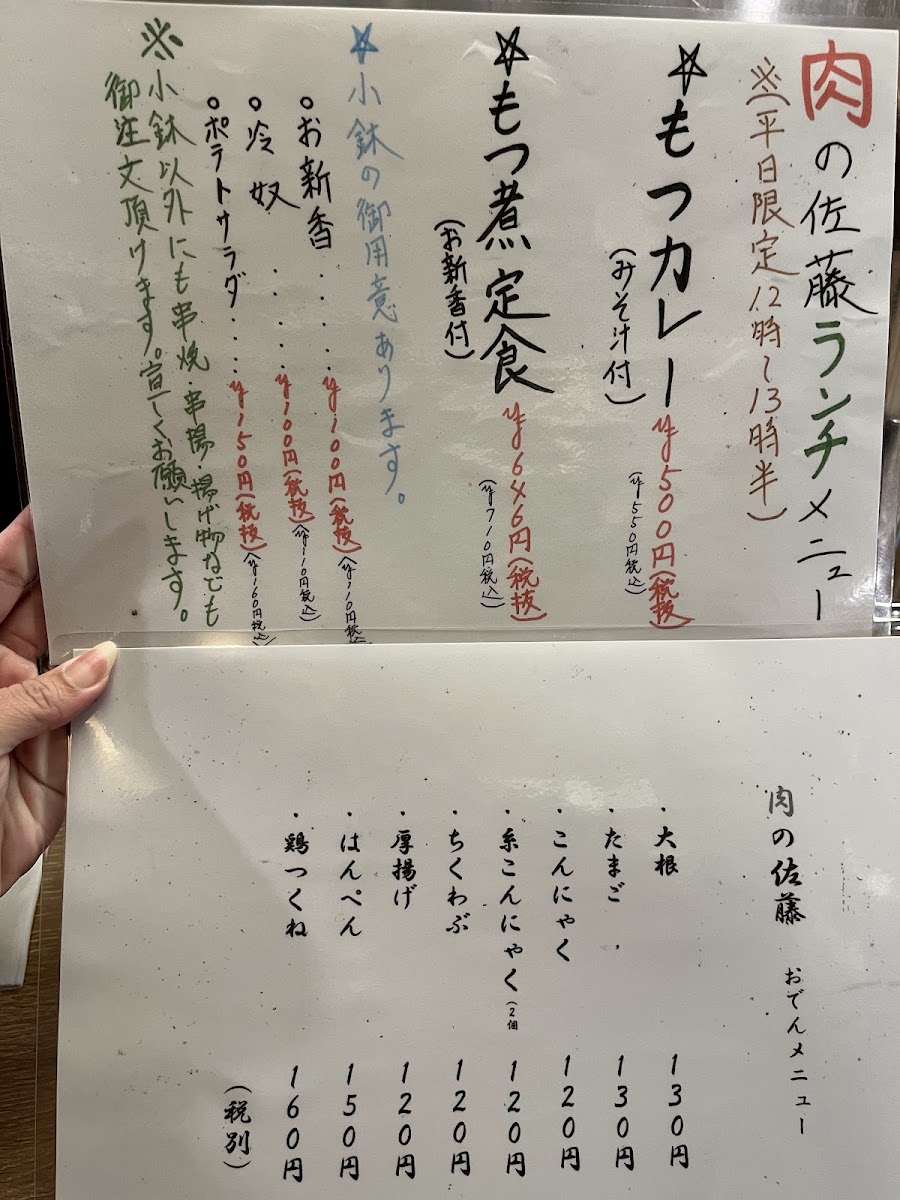 肉の佐藤ランチメニュー
※(平日限定12時~13時半)
☆もつカレー ¥500円(税抜)
(みそ汁付) (¥550円税込)
☆もつ煮定食 ¥646円(税抜)
(お新香付) (¥710円税込)
☆小鉢の御用意あります。
○お新香・・・¥100円(税抜)(¥110円税込)
○冷奴・・・¥100円(税抜)(¥110円税込)
○ポテトサラダ・・・・¥150円(税抜)(¥160円税込)
※小鉢以外にも串焼・串揚・揚げ物なども
御注文頂けます。宜しくお願いします。
肉の佐藤 おでんメニュー
・大根 130円
・たまご 130円
・こんにゃく 120円
・糸こんにゃく(2個 120円
・ちくわぶ 120円
・厚揚げ 120円
・はんぺん 150円
・鶏つくね 160円
(税別)